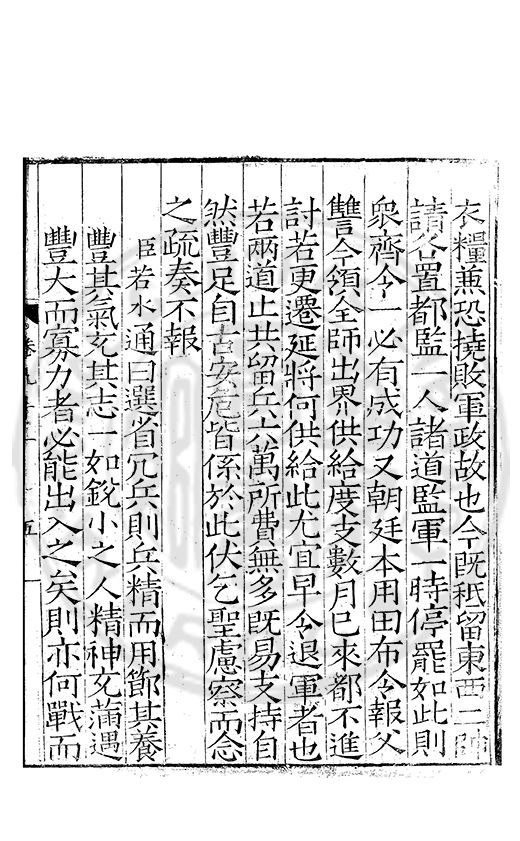 衣糧兼恐撓敗軍政故也今既秪留東西二帥
請各置都監一人諸道監軍一時停罷如此則
衆齊令一必有成功又朝廷本用田布令報父
讐今領全師出界供給度支數月已來都不進
討若更遷延將何供給此尤宜早令退軍者也
若兩道止共留兵六萬所費無多既易支持自
然豐足自古安危皆係於此伏乞聖慮察而念
之疏奏不報
臣若水通曰選省冗兵則兵精而用節其養
豐其氣充其志一如銳小之人精神充滿遇
豐大而寡力者必能出入之矣則亦何戰而
五